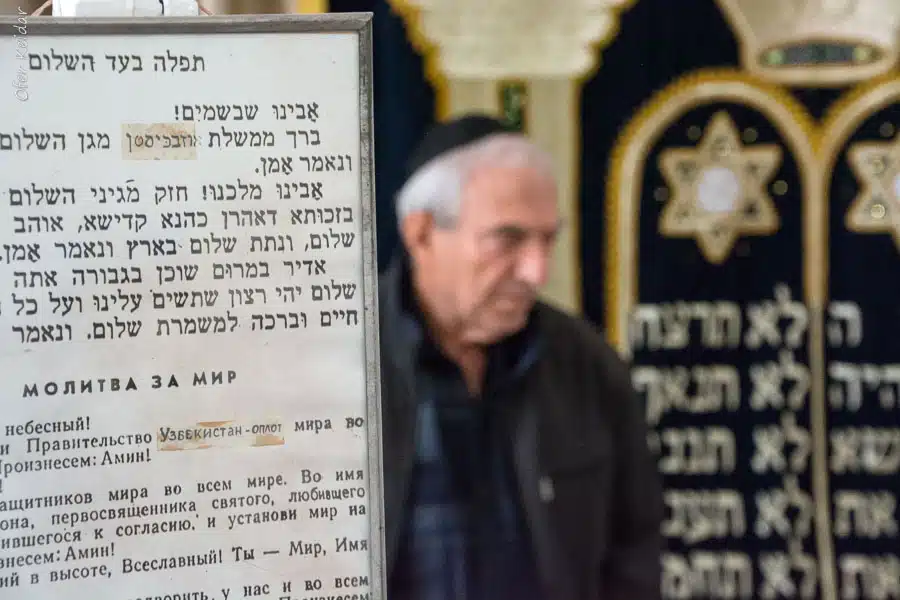 Ofer Keidar
תפלה בעד השלום
אָבינוּ שבשמיִם!
ברך ממשלת אוזבכיסטן מגן השלום
ונאמר אָמן.
אָבינוּ מלכנוּ! חזק מגיני השלום
בזכוּתא דאהרן כהנא קדישא, אוהב
שלום, ונתת שלום בארץ ונאמר אָמן.
אדיר במרום שוכן בגבורה אתה
שלום יהי רצון שתשים עלינוּ ועל כל
חיים וּברכה למשמרת שלום. ונאמר
МОЛИТВА ЗА МИР
небесный!
и Правительство Узбекистан-оплот мира во
Произнесем: Амин!
ащитников мира во всем мире. Во имя
она, первосвященника святого, любившего
ившегося к согласию, и установи мир на
знесем: Амин!
ий в высоте, Всеславный! Ты — Мир, Имя
у нас и во всем
ה לא תרצח
היה לא תנאף
שא לא תגנב
את לא תענ
את לא תחמ